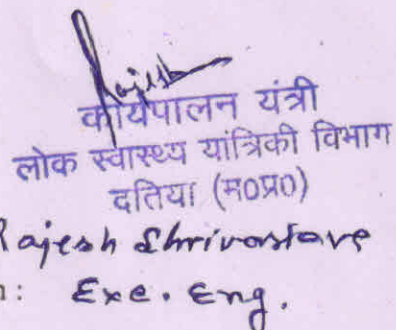 Rajesh
कार्यपालन यंत्री
लोक स्वास्थ्य यांत्रिकी विभाग
दतिया (म0प्र0)
Rajesh Shrivastava
n: Exe. Eng.